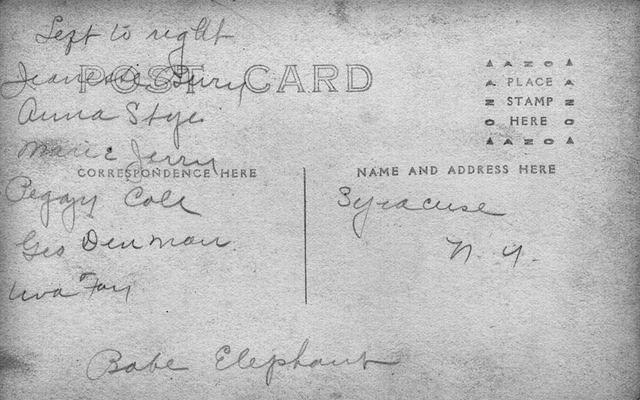 Left to right
POST CARD
Jeanette Burry
Anna Stye
Marie Jerry
CORRESPONDENCE HERE
Peggy Cole
Geo Denman
Fay
Babe Elephant
AZO
PLACE
STAMP
HERE
AZO
NAME AND ADDRESS HERE
Syracuse
N. Y.